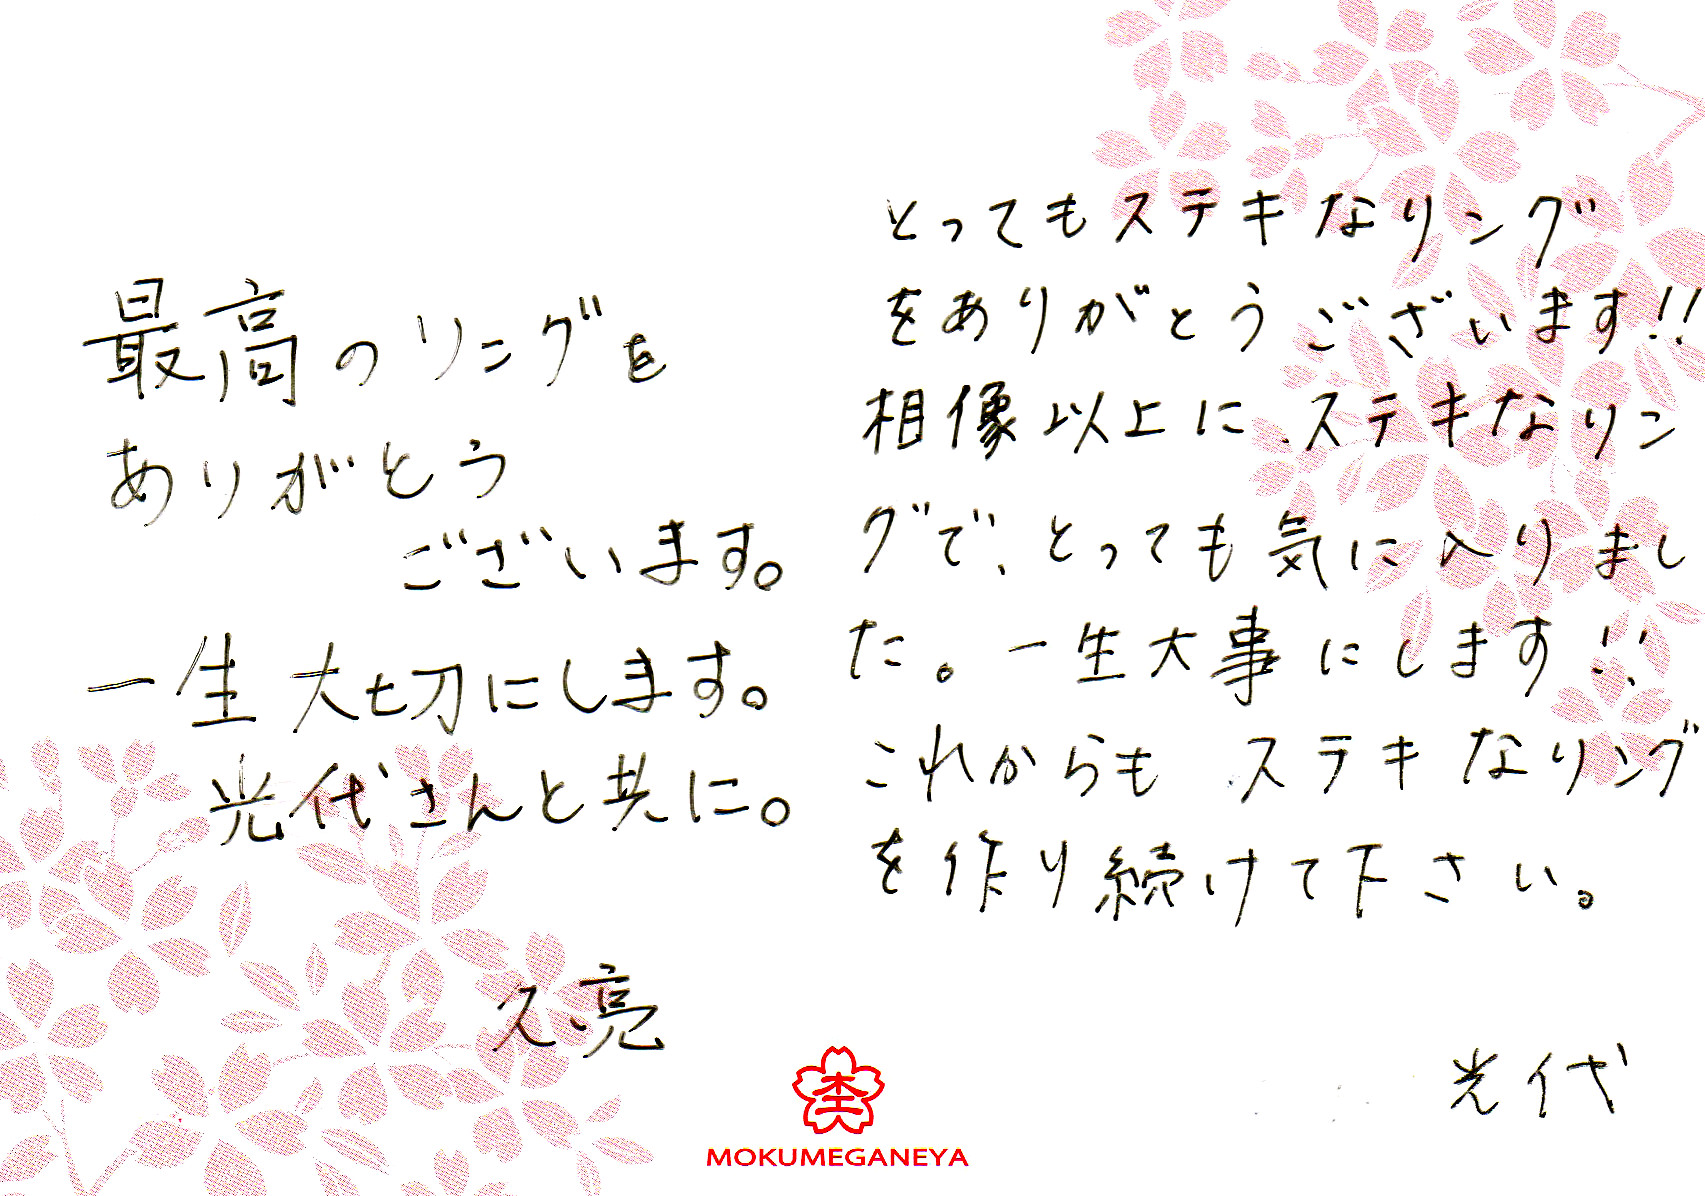 最高のリングを
ありがとう
ございます。
一生大切にします。
光代さんと共に。
久亮
とってもステキなリング
をありがとうございます!!
相像以上に、ステキなリン
グで、とっても気に入りまし
た。一生大事にします!!
これからも、ステキなリング
を作り続けて下さい。
光代
杢
MOKUMEGANEYA